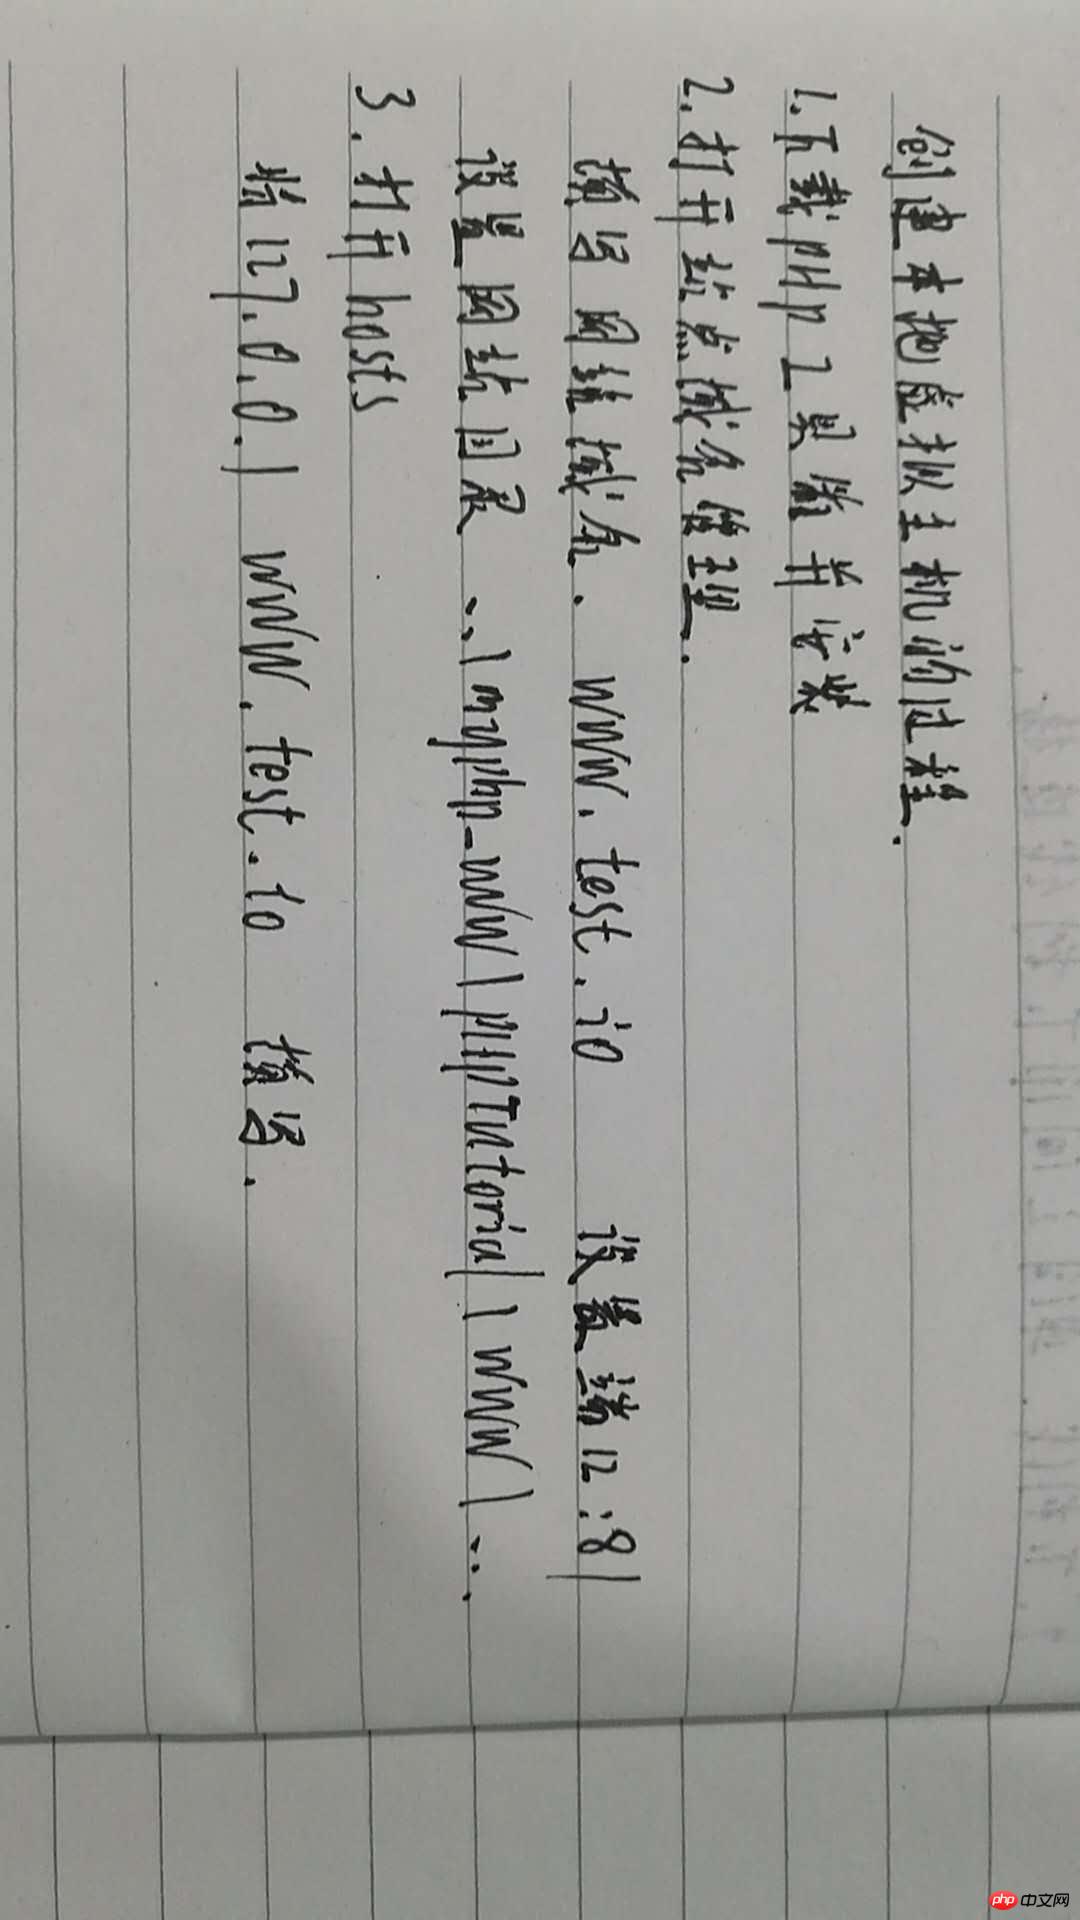 创建本地虚拟主机的过程.
1.下载PHP工具箱并安装
2.打开站点域名管理.
填写网站域名. www.test.io 设置端口:81
设置网站目录 ..\myphp_www\PHPTutorial\WWW\...
3.打开hosts
将127.0.0.1 www.test.io 填写.
php 中文网